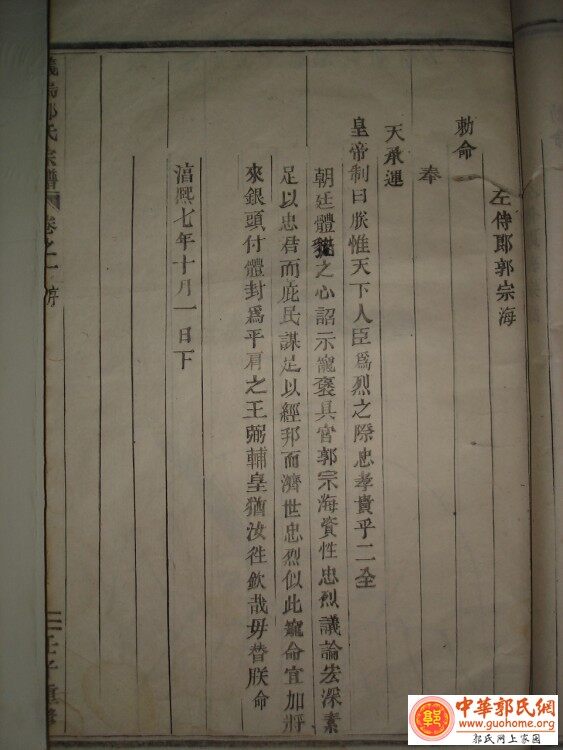 左侍郎郭宗海
勅命
奉
天承運
皇帝制曰朕惟天下人臣爲烈之際忠孝貴乎二全
朝廷體之心詔示寵褒具官郭宗海資性忠烈議論宏深素
足以忠君而庇民謀足以經邦而濟世忠烈似此寵命宜加將
來銀頭付體封爲平肩之王弼輔皇猶汝徃欽哉毋替朕命
淳熙七年十月一日下
氏宗譜 卷之一 序
中華郭氏網
www.guohome.org
郭氏网上家园